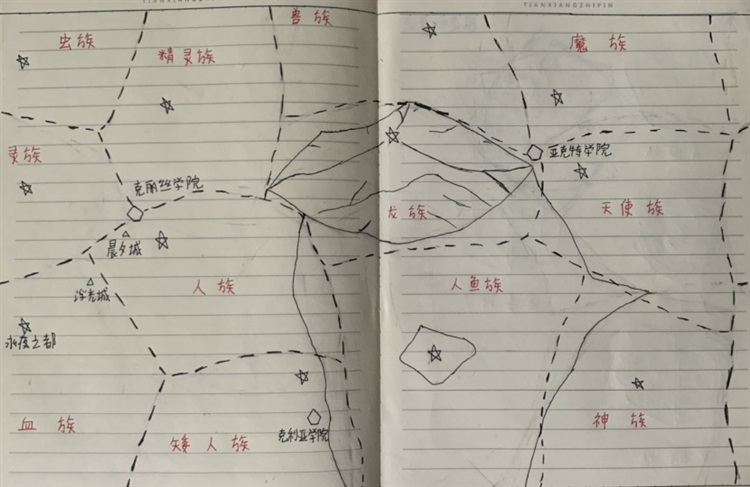 TIANXIANGZHIPIN
兽族
虫族
精灵族
魔族
灵族
克丽丝学院
亚克特学院
龙族
天使族
晨夕城
人族
人鱼族
浮光城
永夜之都
血族
矮人族
克利亚学院
神族